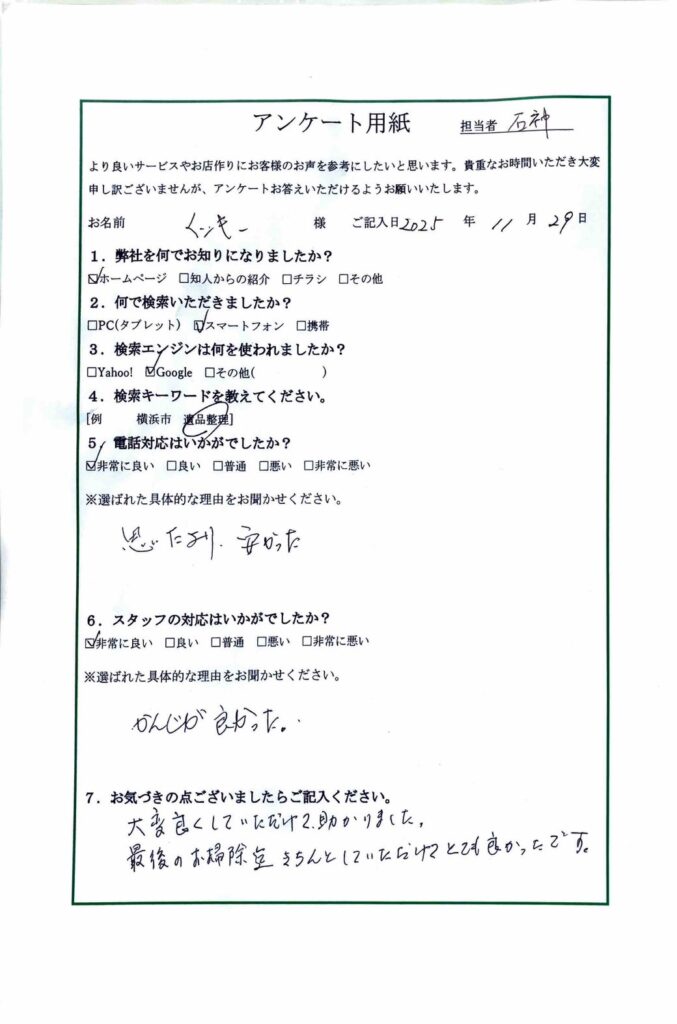 アンケート用紙
担当者 石神
より良いサービスやお店作りにお客様のお声を参考にしたいと思います。貴重なお時間いただき大変
申し訳ございませんが、アンケートお答えいただけるようお願いいたします。
お名前 様 ご記入日2025 年 11 月 29 日
1．弊社を何でお知りになりましたか？
☑ホームページ □知人からの紹介 □チラシ □その他
2．何で検索いただきましたか？
□PC(タブレット) ☑スマートフォン □携帯
3．検索エンジンは何を使われましたか？
□Yahoo! ☑Google □その他( )
4．検索キーワードを教えてください。
[例 横浜市 遺品整理]
5．電話対応はいかがでしたか？
☑非常に良い □良い □普通 □悪い □非常に悪い
※選ばれた具体的な理由をお聞かせください。
思いたより、安かった
6．スタッフの対応はいかがでしたか？
☑非常に良い □良い □普通 □悪い □非常に悪い
※選ばれた具体的な理由をお聞かせください。
かんじが良かった。
7．お気づきの点ございましたらご記入ください。
大変良くしていただけて、助かりました。
最後のお掃除迄きちんとしていただけてとても良かったです。